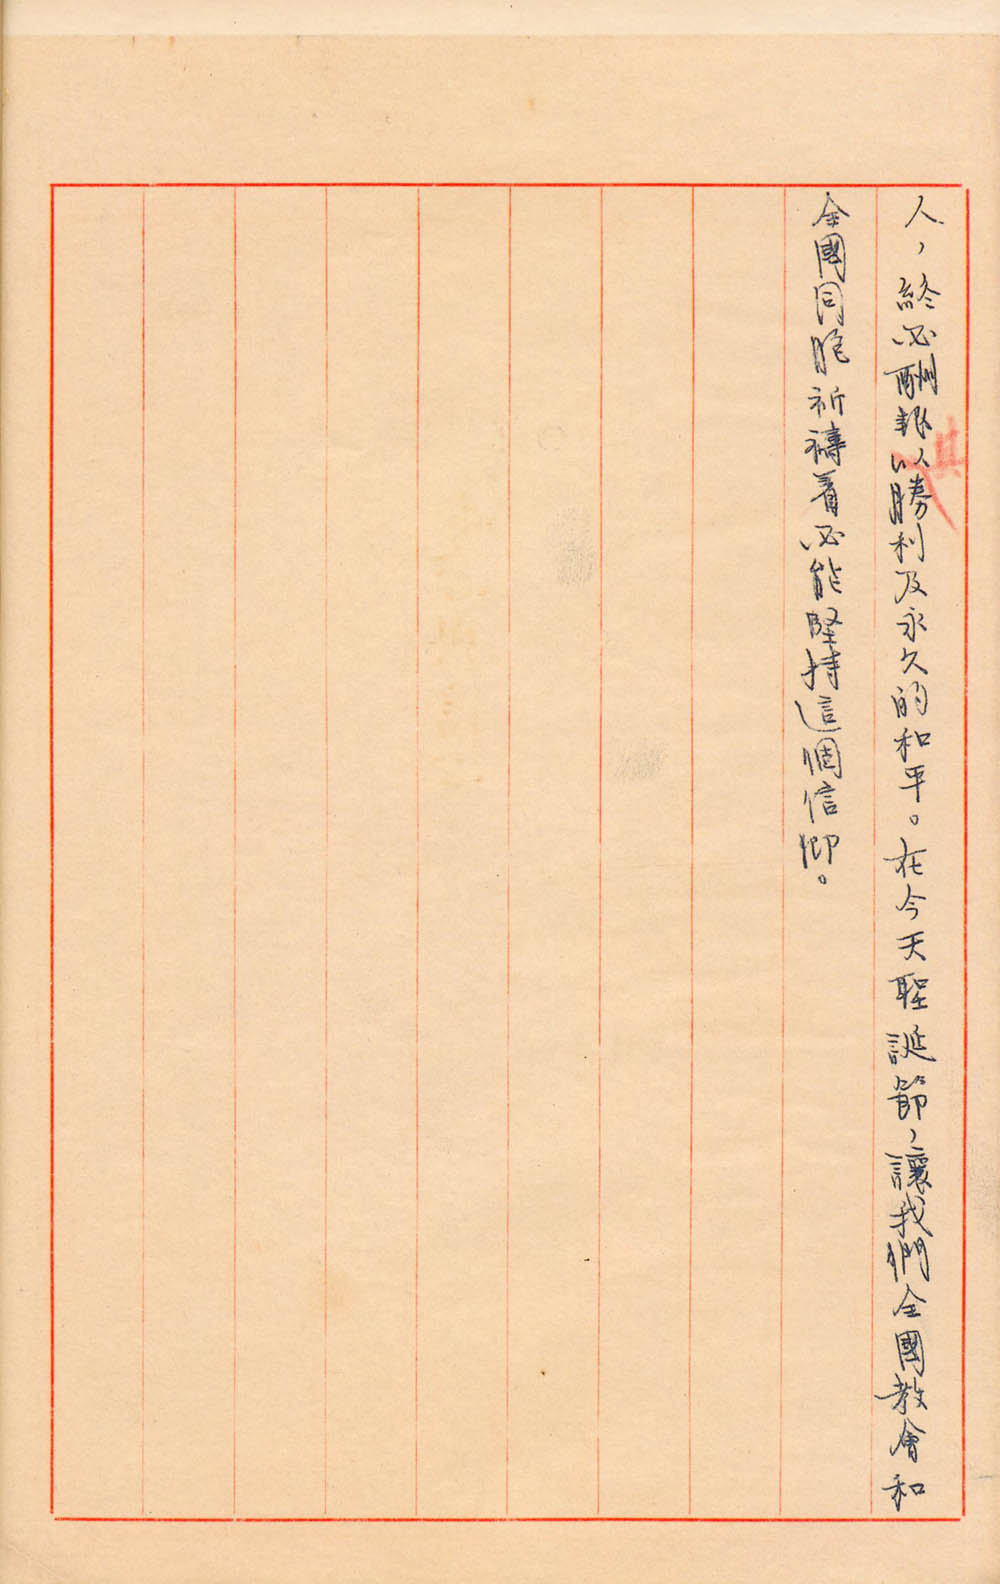 人，終必酬報以勝利及永久的和平。在今天聖誕節，讓我們全國教會和
全國同胞祈禱着必能堅持這個信仰。
其